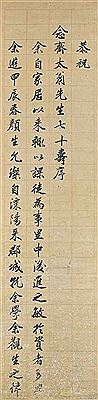 恭祝
念齋太翁先生七十壽序
余自家居以來輒以課徒為事里中後進之敏於資者多
余遊甲辰春顏生允璨自滾濤來郡城從余學余觀生之